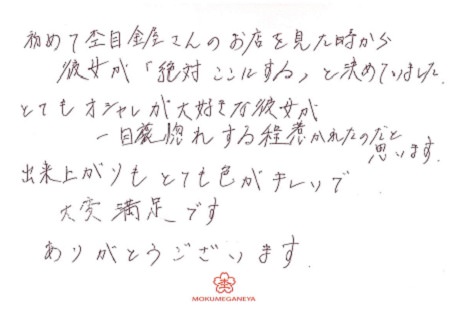 初めて杢目金屋さんのお店を見た時から
彼女が「絶対ここにする」と決めていました。
とてもオシャレが大好きな彼女が
一目惚れする程惹かれたのだと
思います。
出来上がりもとても色がキレイで
大変満足です
ありがとうございます。
MOKUMEGANEYA